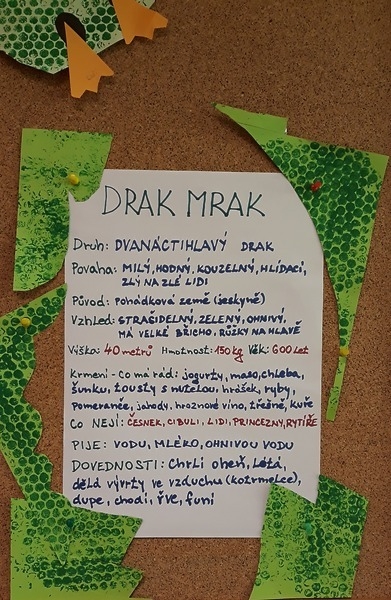 DRAK MRAK
Druh: DVANÁCTIHLAVÝ DRAK
Povaha: MILÝ, HODNÝ, KOUZELNÝ, HLÍDACÍ,
ZLÝ NA ZLÉ LIDI
Původ: Pohádková země (jeskyně)
Vzhled: STRAŠIDELNÝ, ZELENÝ, OHNIVÝ,
MÁ VELKÉ BŘICHO, RŮŽKY NA HLAVĚ
Výška: 40 metrů Hmotnost: 150 kg Věk: 600 let
Krmení - Co má rád: jogurty, maso, chleba,
šunku, tousty s nutelou, hrášek, ryby,
Pomeranče, jahody, hroznové víno, třešně, kuře
CO NEJÍ: ČESNEK, CIBULI, LIDI, PRINCEZNY, RYTÍŘE
PIJE: VODU, MLÉKO, OHNIVOU VODU
DOVEDNOSTI: Chrlí oheň, létá,
dělá vývrty ve vzduchu (kotrmelce),
dupe, chodí, řve, funí